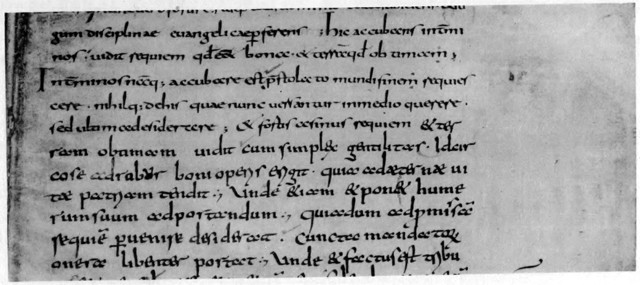 gum disciplinae euangelicae perferens ; hic accubans intermi
nos . uidit requiem qđ eēt bona & terrā qđ obtimam ;
Intermino namq; accubare est praestolato mundi finem requies
cere . nihilq; dehis quae nunc uersantur inmedio querere .
sed ultima desiderare ; & fortis asinus requiem & ter
ram obtimam uidit cum simplex gentilitas . Idcir
co se ad robur boni operis erigit . quia ad aeternae ui
tae patriam tendit ; unde &iam & ponit hume
rum suum ad portandum ; quia dum ad promissā
requiē peruenire desiderat . cuncta mandator
onera libenter portat ; unde & factus est tribu